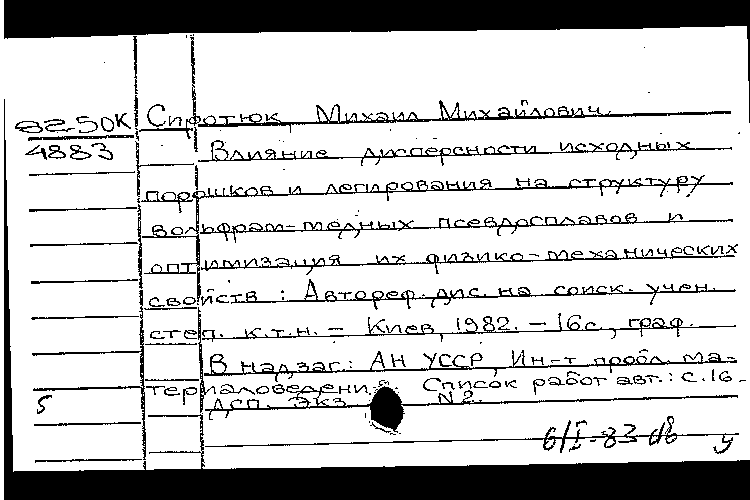 82-50К Сиротюк, Михаил Михайлович.
4883 Влияние дисперсности исходных
порошков и легирования на структуру
вольфрам-медных псевдосплавов и
оптимизация их физико-механических
свойств : Автореф. дис. на соиск. учен.
степ. к.т.н. - Киев, 1982. - 16с., граф.
В надзаг.: АН УССР, Ин-т пробл. ма-
териаловедения. Список работ авт.: с.16-
5 ДСП. Экз. N 2.
6/I-83
у